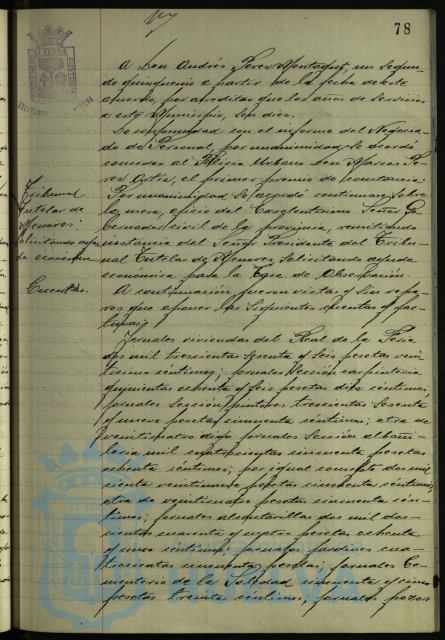 78
A Don Andrés Perez Montaqut, un segun-
do quinquenio a partir de la fecha de este
acuerdo, por acreditar que los años de servicios
a este Municipio, son diez.
De conformidad con el informe del Negocia-
do de Personal, por unanimidad se acordó
conceder al Policia Urbano Don Marcos Pe-
rez Ortiz, el primer premio de constancia.
Tribunal
Tutelar de
Menores:
solicitando ayu-
da económica
Por unanimidad se acordó continuase sobre
la mesa, oficio del Excelentísimo Señor Go-
bernador civil de la provincia, remitiendo
instancia del Señor Presidente del Tribu-
nal Tutelar de Menores, solicitando ayuda
económica para la Casa de Observación.
Cuentas.
A continuación fueron vistas y sin repa-
ros que oponer las siguientes cuentas y fac-
turas:
Jornales viviendas del Real de la Feria
dos mil trescientas sesenta y seis pesetas vein-
ticinco céntimos; jornales Sección carpinteria
quinientas ochenta y seis pesetas diez céntimos;
jornales Sección pintores trescientas sesenta
y nueve pesetas cincuenta céntimos; otra de
veinticuatro dias jornales Sección albañi-
leria mil cuatrocientas cincuenta pesetas
ochenta céntimos; por igual concepto dos mil
ciento veintinueve pesetas cincuenta céntimos;
otra de veintinueve pesetas cincuenta cén-
timos; jornales alcantarillas dos mil dos-
cientas cuarenta y cuatro pesetas ochenta
y cinco céntimos; jornales jardines cua-
trocientas cincuenta pesetas; jornales Ce-
menterio de la Soledad cincuenta y cinco
pesetas treinta céntimos; jornales pozos